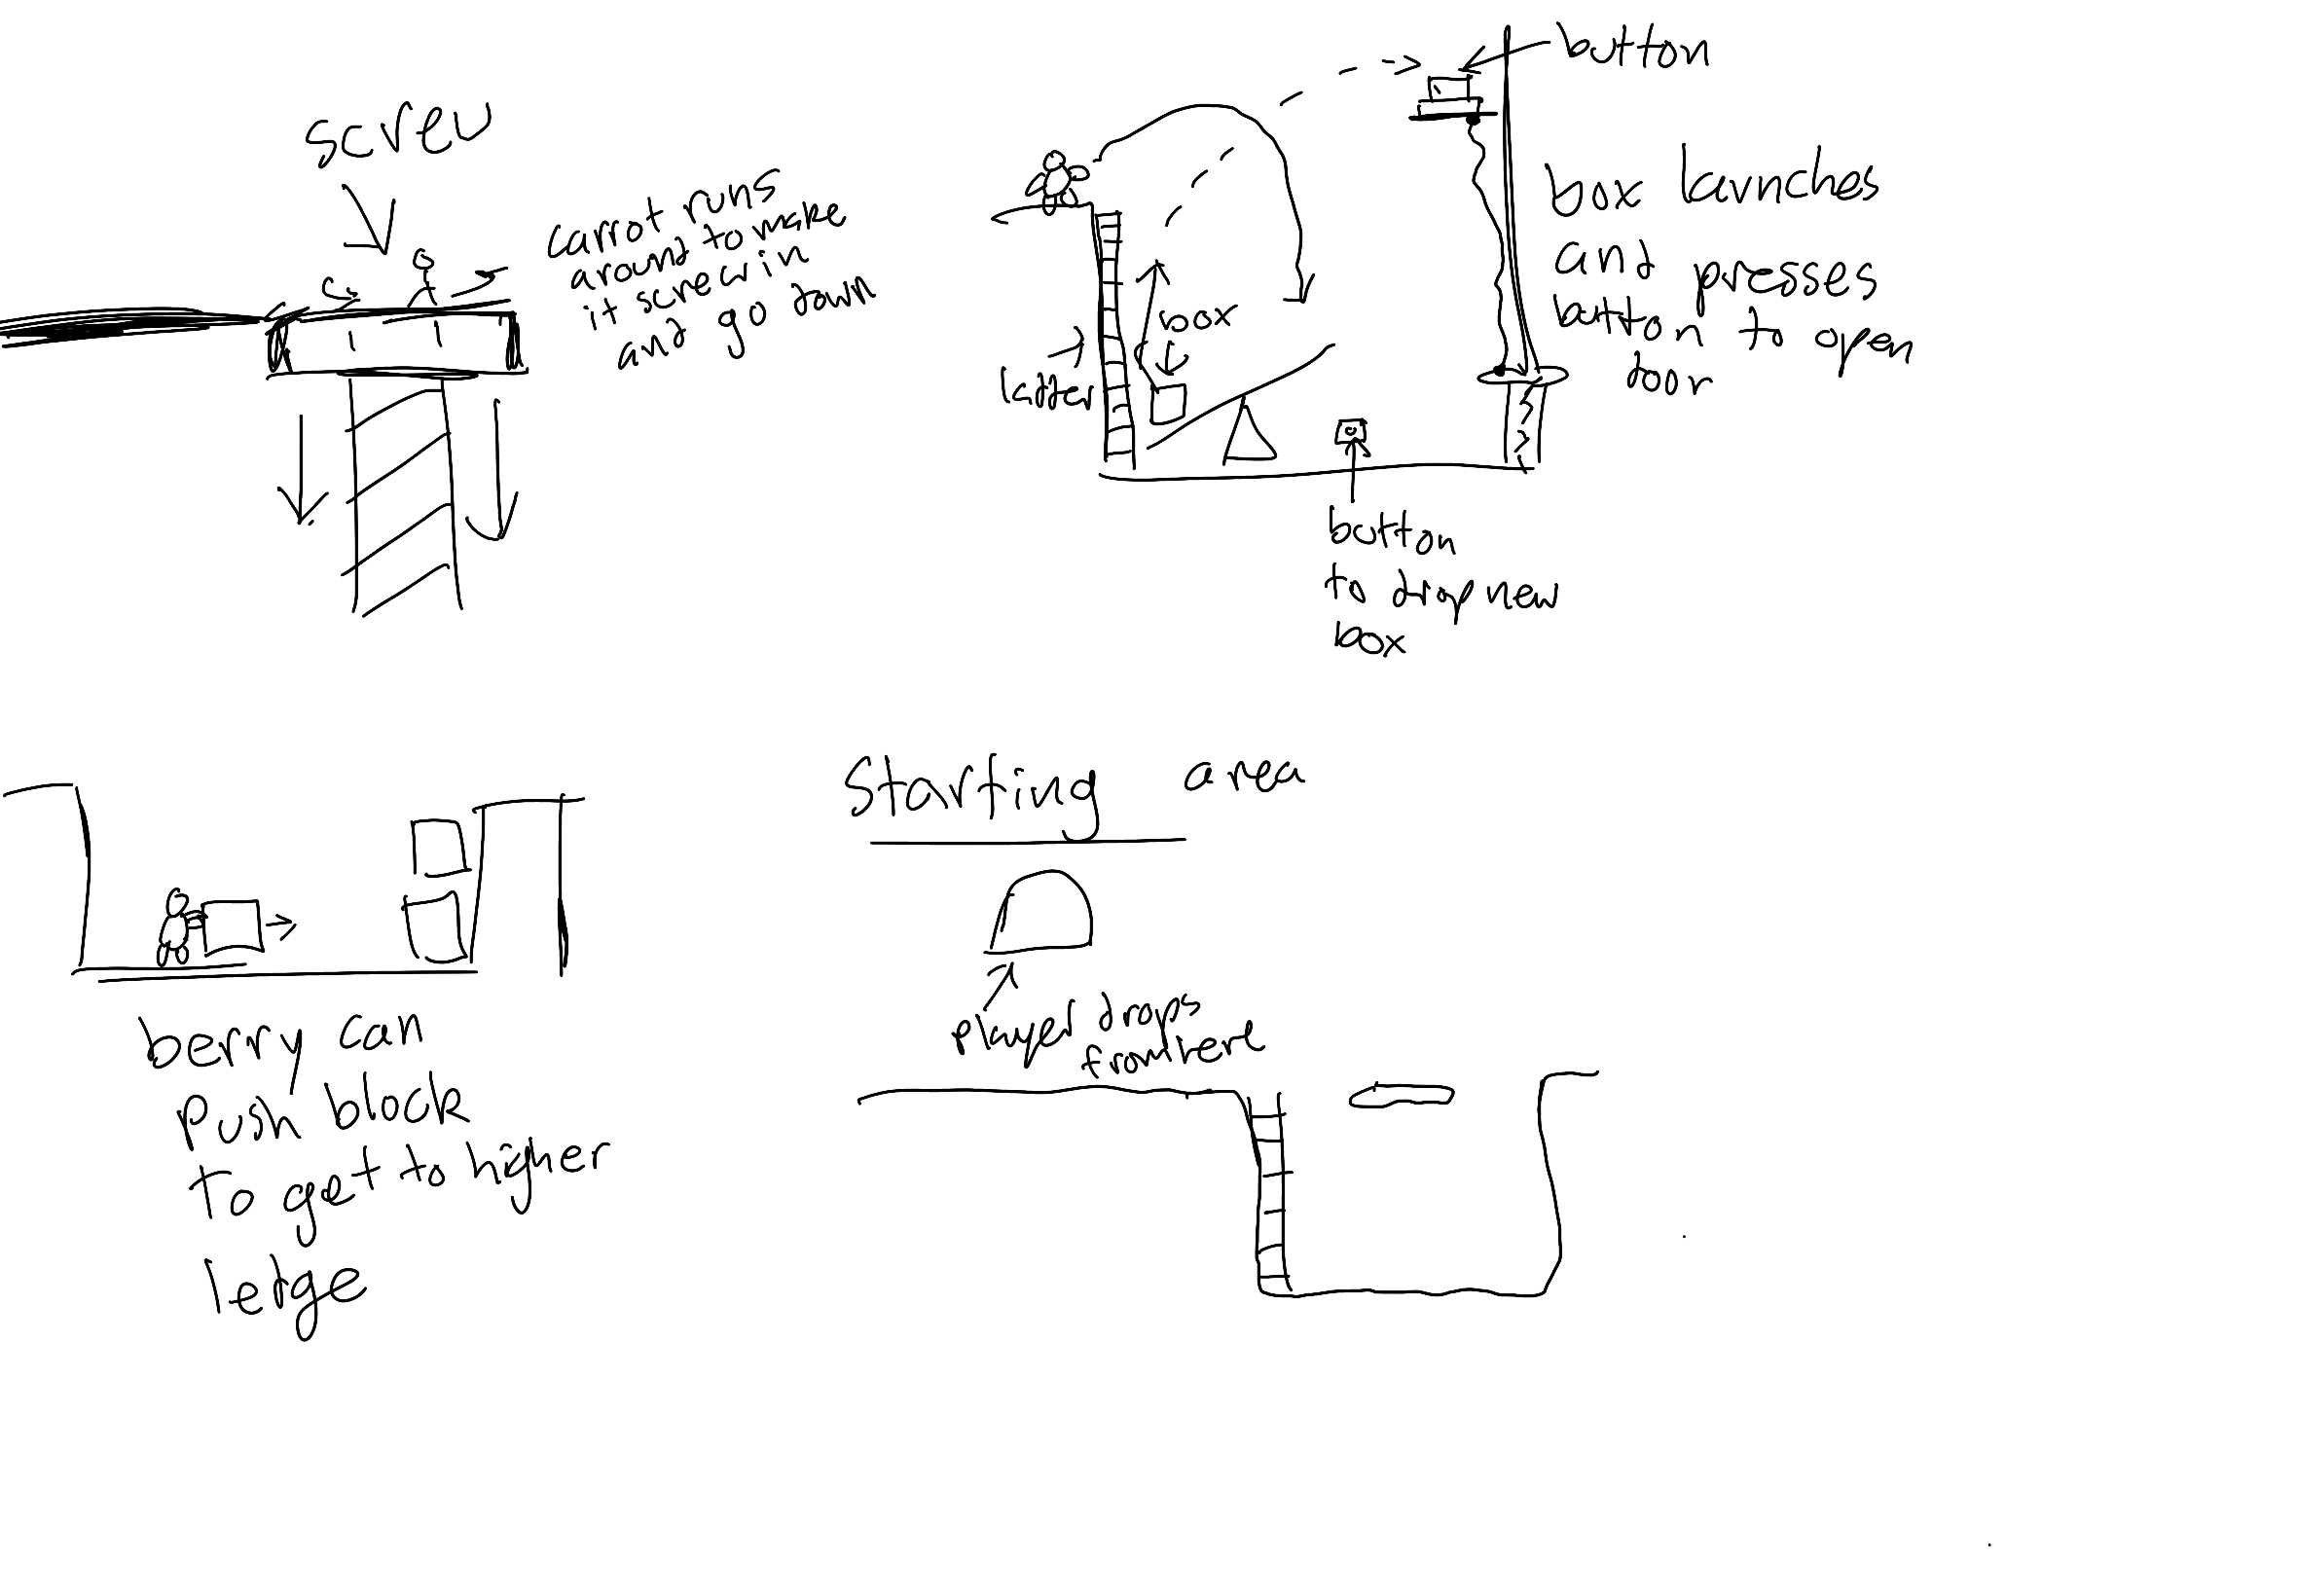 screw
carrot runs
around to make
it screw in
and go down
button
box launches
and presses
button to open
door
box
ladder
button
to drop new
box
berry can
push block
to get to higher
ledge
Starting area
player drops
from here